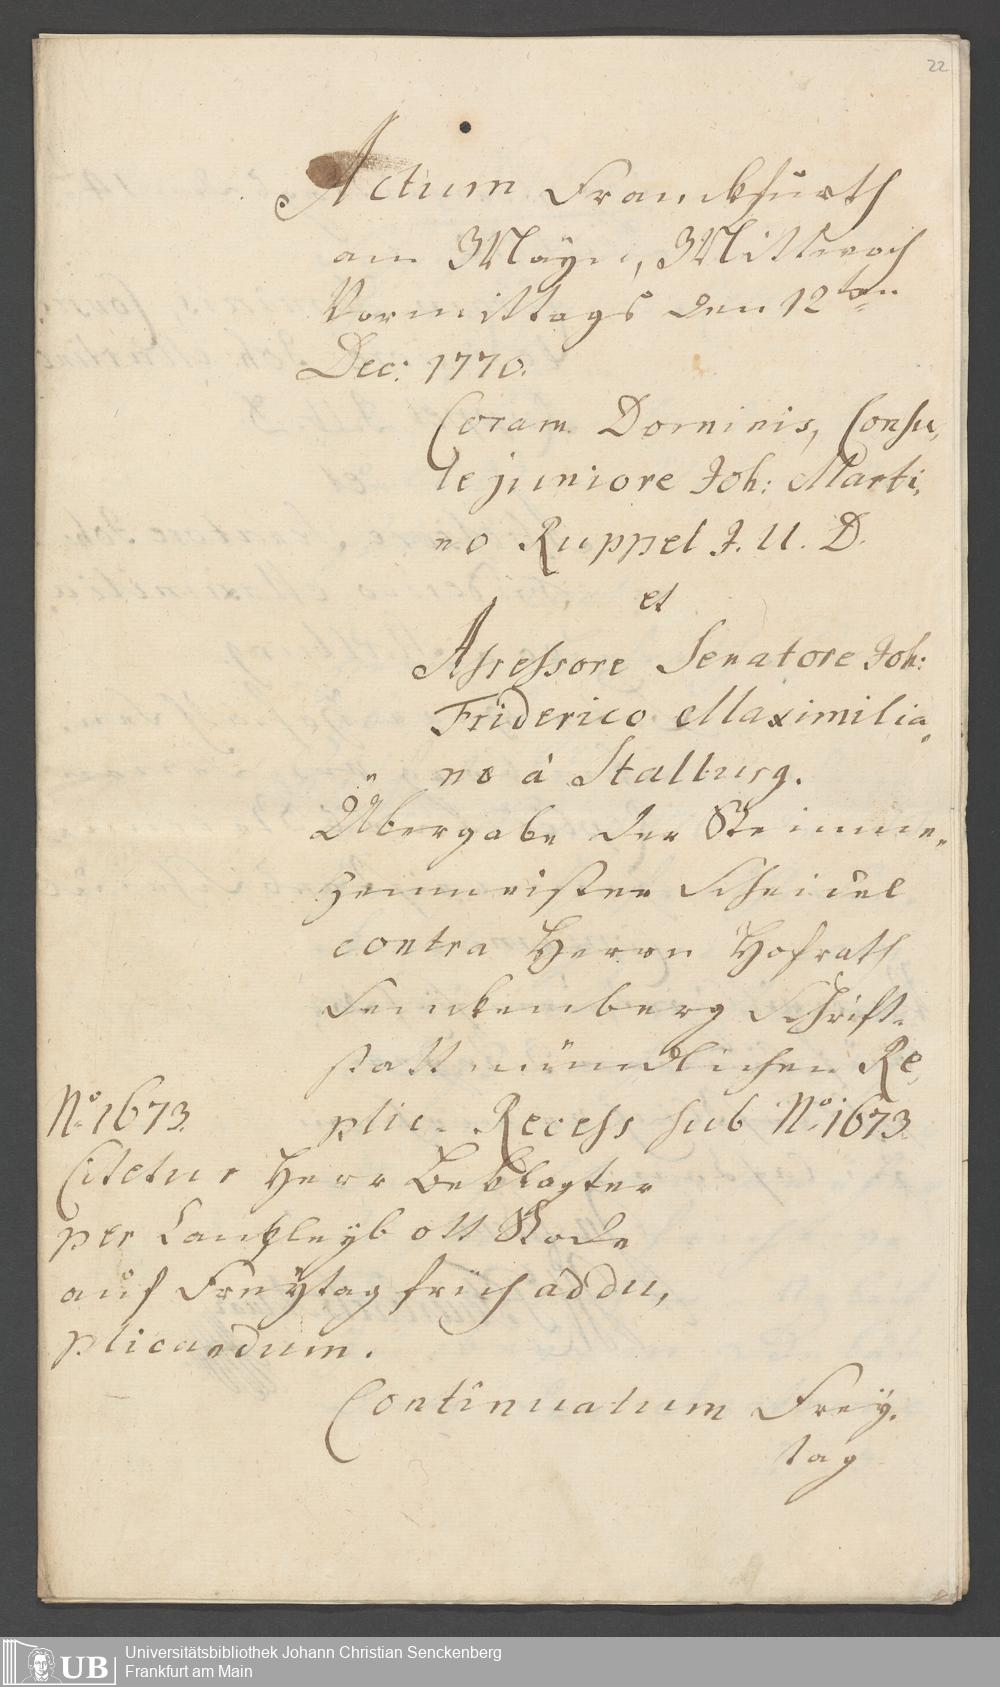 22
Actum Franckfurth
am Mayn, Mittwoch
Vormittags den 12ten
Dec: 1770.
Coram Dominis, Consu,
le juniore Joh: Marti,
no Ruppel J. U. D.
et
Assessore Senatore Joh:
Friderico Maximilia,
no à Stalburg.
Übergabe der Steinme,
zenmeister Scheidel
contra Herrn Hofrath
Senckenberg Schrift-
statt mündlichen Re,
plic. Recess sub No. 1673.
No. 1673.
Citetur Herr Beklagter
per Canzleybott Rode
auf Freytag früh ad du,
plicandum.
Continuatum Frey,
tag
UB
Universitätsbibliothek Johann Christian Senckenberg
Frankfurt am Main